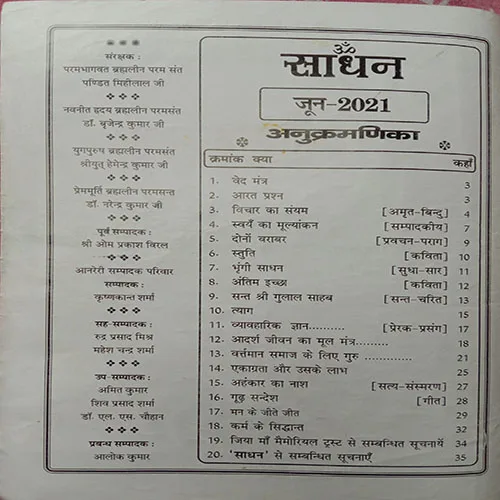 संरक्षक :
परमभागवत ब्रह्मलीन परम संत
पण्डित मिहीलाल जी
❖ ❖ ❖
नवनीत हृदय ब्रह्मलीन परमसंत
डॉ. बृजेन्द्र कुमार जी
❖ ❖ ❖
युगपुरुष ब्रह्मलीन परमसंत
श्रीयुत् हेमेन्द्र कुमार जी
❖ ❖ ❖
प्रेममूर्ति ब्रह्मलीन परमसन्त
डॉ. नरेन्द्र कुमार जी
❖ ❖ ❖
पूर्व सम्पादक :
श्री ओम प्रकाश विरल
❖ ❖ ❖
आनरेरी सम्पादक परिवार
सम्पादक :
कृष्णकान्त शर्मा
❖ ❖ ❖
सह-सम्पादक :
रुद्र प्रसाद मिश्र
महेश चन्द्र शर्मा
❖ ❖ ❖
उप-सम्पादक :
अमित कुमार
शिव प्रसाद शर्मा
डॉ. एल. एस. चौहान
❖ ❖ ❖
प्रबन्ध सम्पादक :
आलोक कुमार
ॐ
साधन
जून-2021
अनुक्रमणिका
क्रमांक क्या कहाँ
1. वेद मंत्र 3
2. आरत प्रश्न 3
3. विचार का संयम [अमृत-बिन्दु] 4
4. स्वयँ का मूल्यांकन [सम्पादकीय] 7
5. दोनों बराबर [प्रवचन-पराग] 9
6. स्तुति [कविता] 10
7. भृंगी साधन [सुधा-सार] 11
8. अंतिम इच्छा [कविता] 12
9. सन्त श्री गुलाल साहब [सन्त-चरित] 13
10. त्याग 15
11. व्यावहारिक ज्ञान.......... [प्रेरक-प्रसंग] 17
12. आदर्श जीवन का मूल मंत्र......... 18
13. वर्त्तमान समाज के लिए गुरु ............. 21
14. एकाग्रता और उसके लाभ 25
15. अहंकार का नाश [सत्य-संस्मरण] 27
16. गूढ़ सन्देश [गीत] 28
17. मन के जीते जीत 29
18. कर्म के सिद्धान्त 32
19. जिया माँ मैमोरियल ट्रस्ट से सम्बन्धित सूचनायें 34
20. 'साधन' से सम्बन्धित सूचनाएँ 35